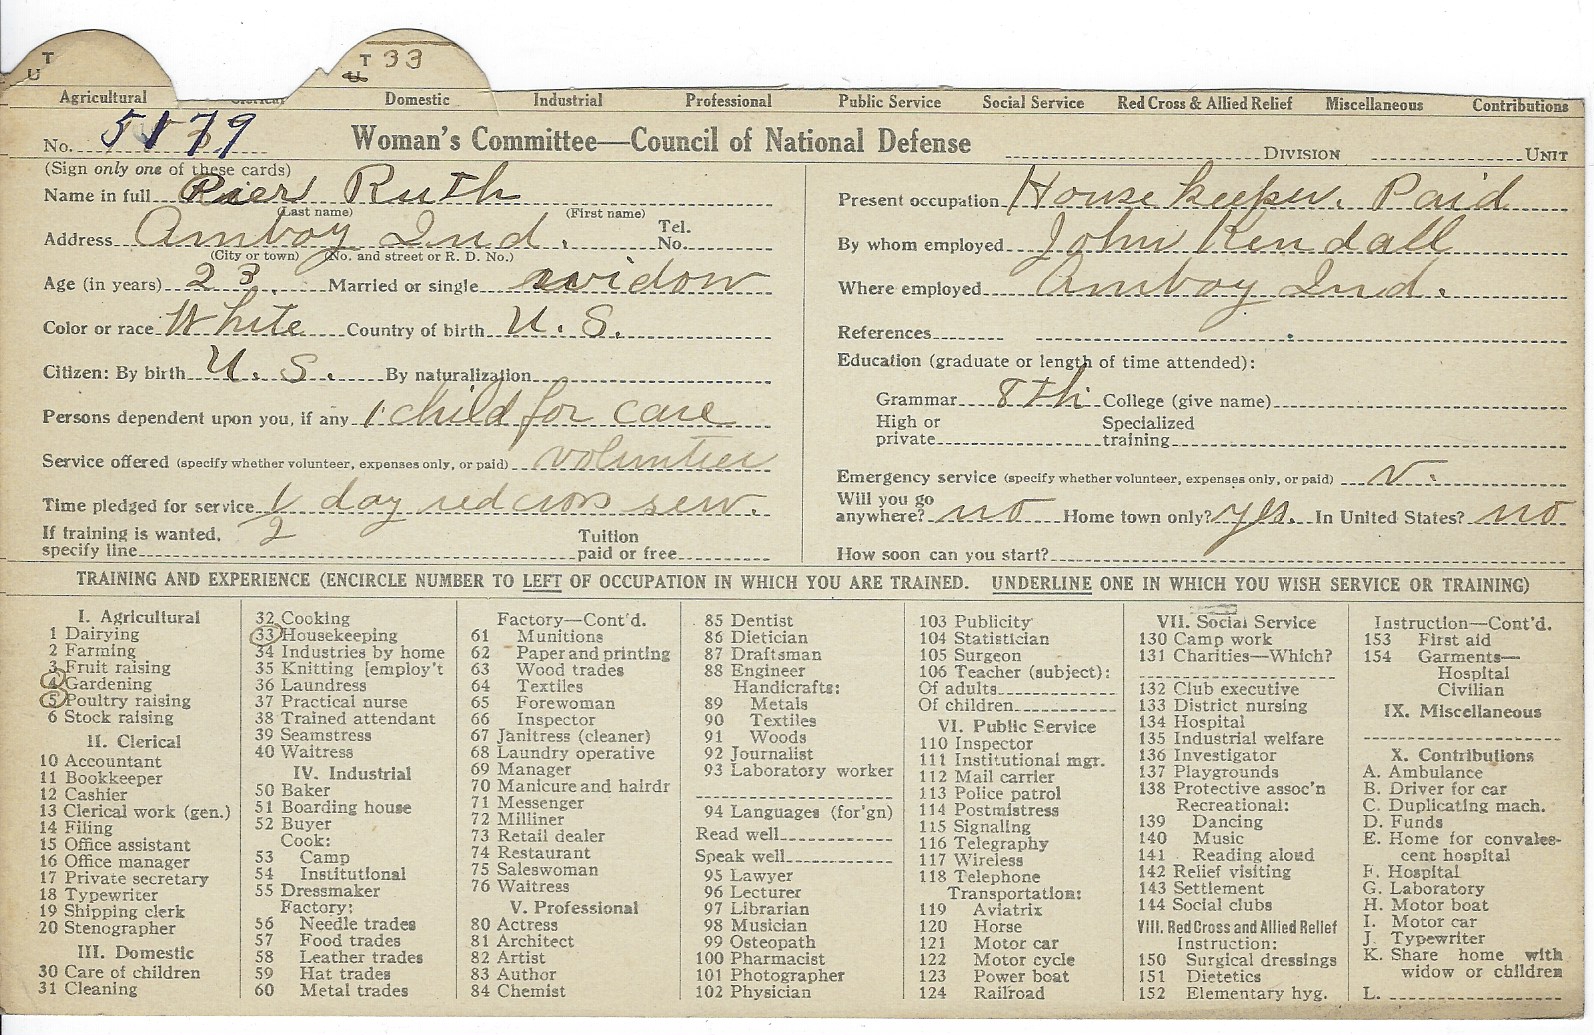 T
U
T 33
U
Agricultural Domestic Industrial Professional Public Service Social Service Red Cross & Allied Relief Miscellaneous Contributions
No. 5179
Woman's Committee—Council of National Defense
DIVISION UNIT
(Sign only one of these cards)
Name in full Rier Ruth
(Last name) (First name)
Address Amboy Ind. Tel. No.
(City or town) (No. and street or R. D. No.)
Age (in years) 23. Married or single widow
Color or race White Country of birth U. S.
Citizen: By birth U. S. By naturalization
Persons dependent upon you, if any 1 child for care
Service offered (specify whether volunteer, expenses only, or paid) volunteer
Time pledged for service 1/2 day red cross sew.
If training is wanted, specify line Tuition paid or free
Present occupation House keeper. Paid
By whom employed John Kendall
Where employed Amboy Ind.
References
Education (graduate or length of time attended):
Grammar 8th College (give name)
High or private Specialized training
Emergency service (specify whether volunteer, expenses only, or paid) v.
Will you go anywhere? no Home town only? yes. In United States? no
How soon can you start?
TRAINING AND EXPERIENCE (ENCIRCLE NUMBER TO LEFT OF OCCUPATION IN WHICH YOU ARE TRAINED. UNDERLINE ONE IN WHICH YOU WISH SERVICE OR TRAINING)
I. Agricultural
1 Dairying
2 Farming
3 Fruit raising
4 Gardening
5 Poultry raising
6 Stock raising
II. Clerical
10 Accountant
11 Bookkeeper
12 Cashier
13 Clerical work (gen.)
14 Filing
15 Office assistant
16 Office manager
17 Private secretary
18 Typewriter
19 Shipping clerk
20 Stenographer
III. Domestic
30 Care of children
31 Cleaning
32 Cooking
33 Housekeeping
34 Industries by home
35 Knitting [employ't
36 Laundress
37 Practical nurse
38 Trained attendant
39 Seamstress
40 Waitress
IV. Industrial
50 Baker
51 Boarding house
52 Buyer
Cook:
53 Camp
54 Institutional
55 Dressmaker
Factory:
56 Needle trades
57 Food trades
58 Leather trades
59 Hat trades
60 Metal trades
Factory—Cont'd.
61 Munitions
62 Paper and printing
63 Wood trades
64 Textiles
65 Forewoman
66 Inspector
67 Janitress (cleaner)
68 Laundry operative
69 Manager
70 Manicure and hairdr
71 Messenger
72 Milliner
73 Retail dealer
74 Restaurant
75 Saleswoman
76 Waitress
V. Professional
80 Actress
81 Architect
82 Artist
83 Author
84 Chemist
85 Dentist
86 Dietician
87 Draftsman
88 Engineer
Handicrafts:
89 Metals
90 Textiles
91 Woods
92 Journalist
93 Laboratory worker
94 Languages (for'gn)
Read well
Speak well
95 Lawyer
96 Lecturer
97 Librarian
98 Musician
99 Osteopath
100 Pharmacist
101 Photographer
102 Physician
103 Publicity
104 Statistician
105 Surgeon
106 Teacher (subject):
Of adults
Of children
VI. Public Service
110 Inspector
111 Institutional mgr.
112 Mail carrier
113 Police patrol
114 Postmistress
115 Signaling
116 Telegraphy
117 Wireless
118 Telephone
Transportation:
119 Aviatrix
120 Horse
121 Motor car
122 Motor cycle
123 Power boat
124 Railroad
VII. Social Service
130 Camp work
131 Charities—Which?
132 Club executive
133 District nursing
134 Hospital
135 Industrial welfare
136 Investigator
137 Playgrounds
138 Protective assoc'n
Recreational:
139 Dancing
140 Music
141 Reading aloud
142 Relief visiting
143 Settlement
144 Social clubs
VIII. Red Cross and Allied Relief
Instruction:
150 Surgical dressings
151 Dietetics
152 Elementary hyg.
Instruction—Cont'd.
153 First aid
154 Garments—
Hospital
Civilian
IX. Miscellaneous
X. Contributions
A. Ambulance
B. Driver for car
C. Duplicating mach.
D. Funds
E. Home for convales-
cent hospital
F. Hospital
G. Laboratory
H. Motor boat
I. Motor car
J. Typewriter
K. Share home with
widow or children
L.